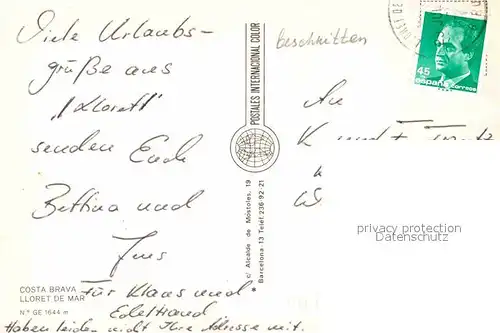 Viele Urlaubs-
grüße aus
"Lloret"
senden Euch
Bettina und
Jens
Für Klaus und
Edeltraud
Haben leider nicht Ihre Adresse mit.
COSTA BRAVA
LLORET DE MAR
N.º GE 1644 m
POSTALES INTERNACIONAL COLOR
c/ Alcalde de Móstoles, 19
Barcelona-13 Telef: 236-92-21
Beschnitten
An
45
españa correos
privacy protection
Datenschutz